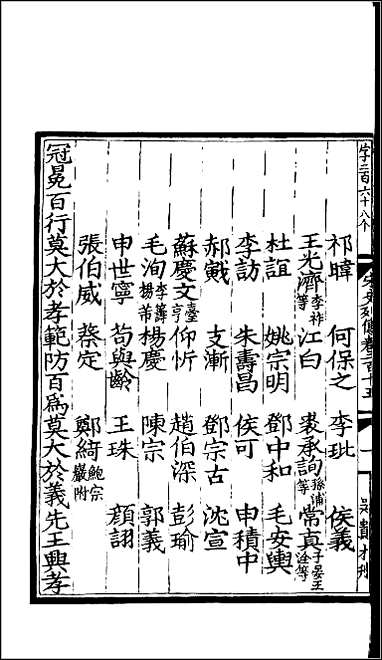 字二百六十八个
宋史列傳卷二百十五
一
祁暐 何保之 李玭 侯義
王光濟李祚等 江白 裘承詢孫浦等 常真子晏王洤等
杜誼 姚宗明 鄧中和 毛安輿
李訪 朱壽昌 侯可 申積中
郝戭 支漸 鄧宗古 沈宣
蘇慶文臺亨 仰忻 趙伯深 彭瑜
毛洵李籌楊芾 楊慶 陳宗 郭義
申世寧 苟與齡 王珠 顏詡
張伯威 蔡定 鄭綺鮑宗巖附
冠冕百行莫大於孝範防百爲莫大於義先王興孝